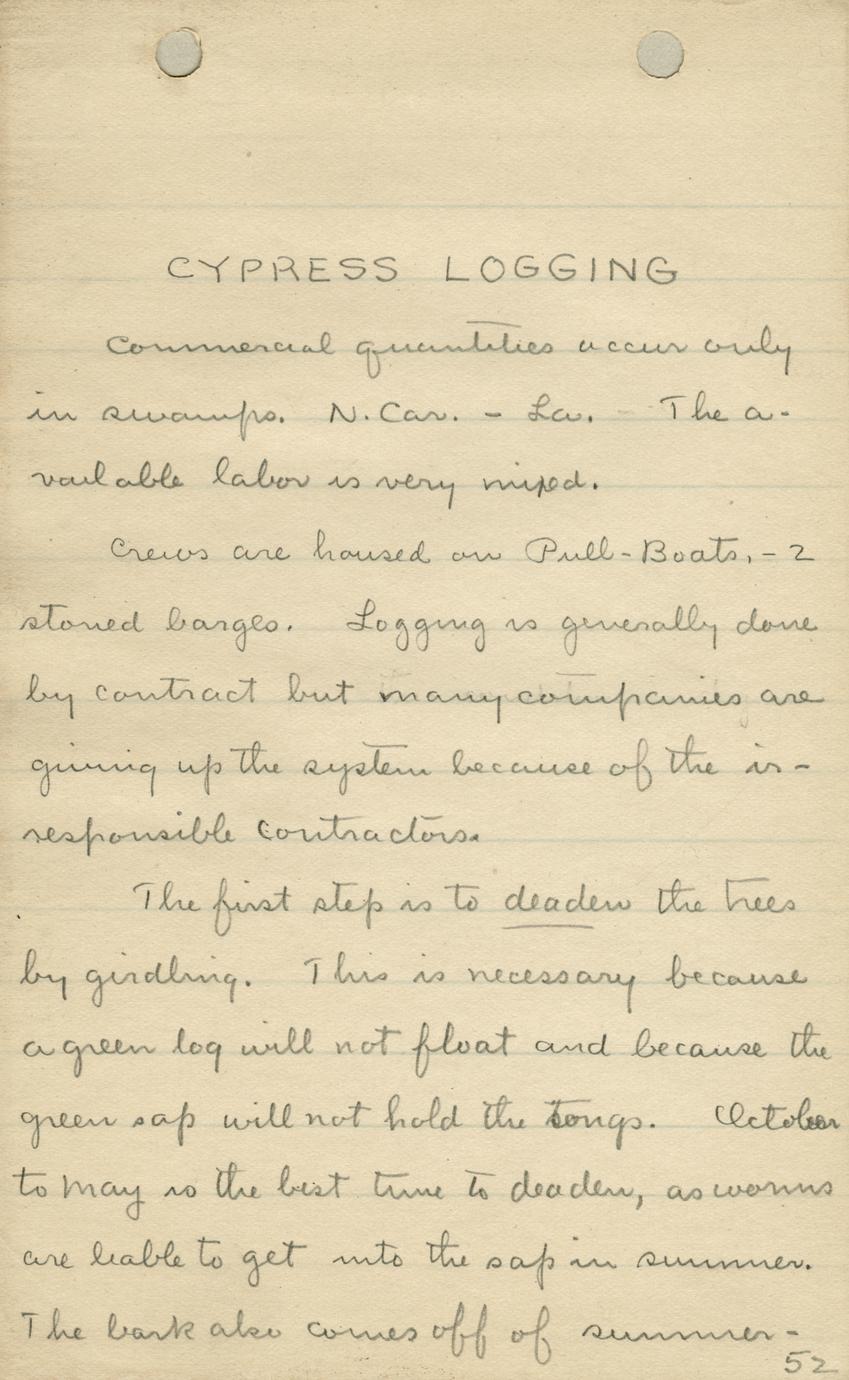 CYPRESS LOGGING
Commercial quantities occur only
in swamps. N. Car. - La. The a-
vailable labor is very mixed.
Crews are housed on Pull-Boats, - 2
storied barges. Logging is generally done
by contract but many companies are
giving up the system because of the ir-
responsible contractors.
The first step is to deaden the trees
by girdling. This is necessary because
a green log will not float and because the
green sap will not hold the tongs. October
to May is the best time to deaden, as worms
are liable to get into the sap in summer.
The bark also comes off of summer-
52